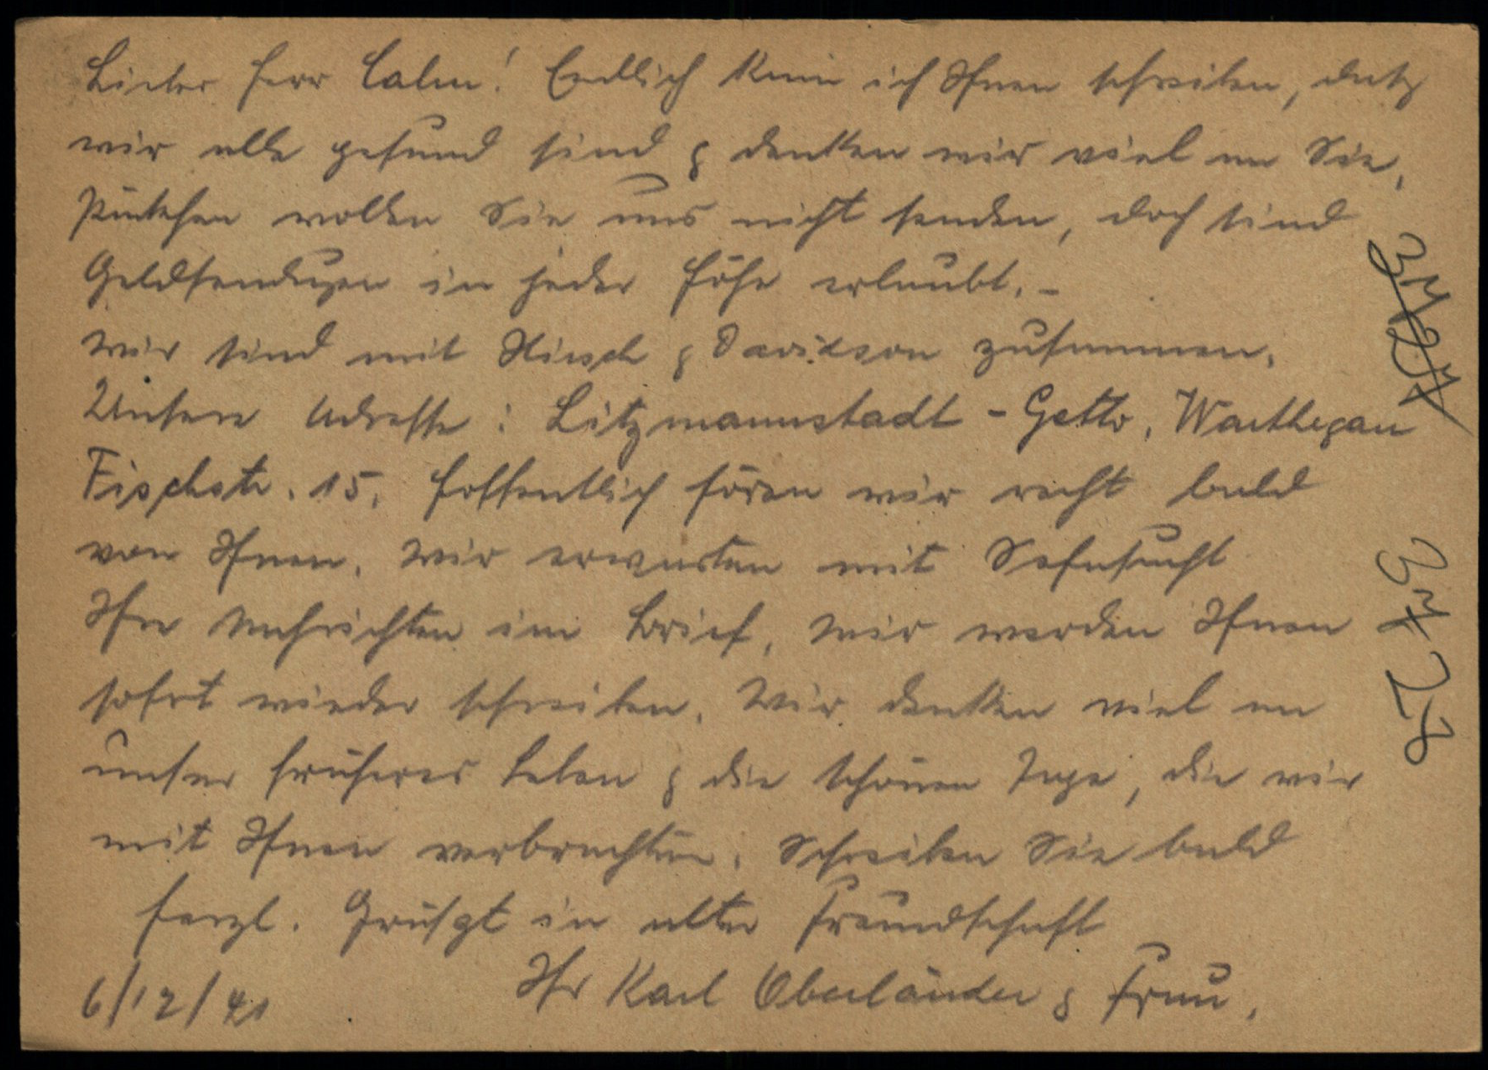 Lieber Herr Calm! Endlich kann ich Ihnen schreiben, daß
wir alle gesund sind & denken wir viel an Sie,
Päckchen wollen Sie uns nicht senden, doch sind
Geldsendungen in jeder Höhe erlaubt. –
Wir sind mit Hirsch & Davidson zusammen.
Unsere Adresse: Litzmannstadt - Getto, Warthegau
Fischstr. 15. Hoffentlich hören wir recht bald
von Ihnen. Wir erwarten mit Sehnsucht
Ihre Nachrichten im Brief, wir werden Ihnen
sofort wieder schreiben. Wir denken viel an
unser früheres Leben & die schönen Tage, die wir
mit Ihnen verbrachten. Schreiben Sie bald
herzl. Grüßt in alter Freundschaft
Ihr Karl Oberländer & Frau.
6/12/41